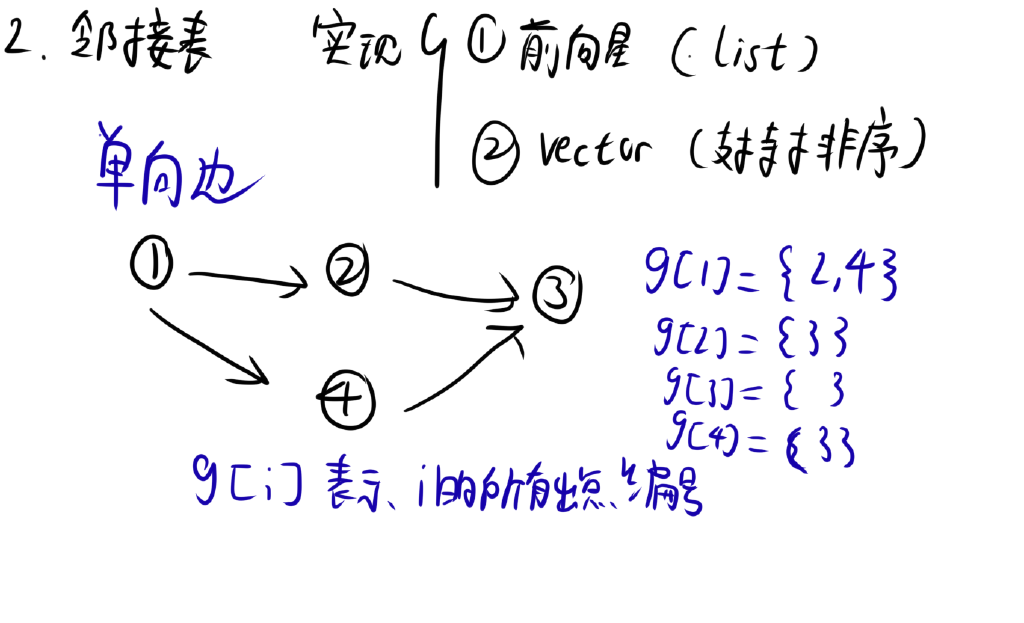 2. 邻接表 实现 { ① 前向星 (list)
② vector (支持排序)
单向边
① ② ③ ④
g[1] = {2,4}
g[2] = {3}
g[3] = { }
g[4] = {3}
g[i] 表示 i 的所有出点编号